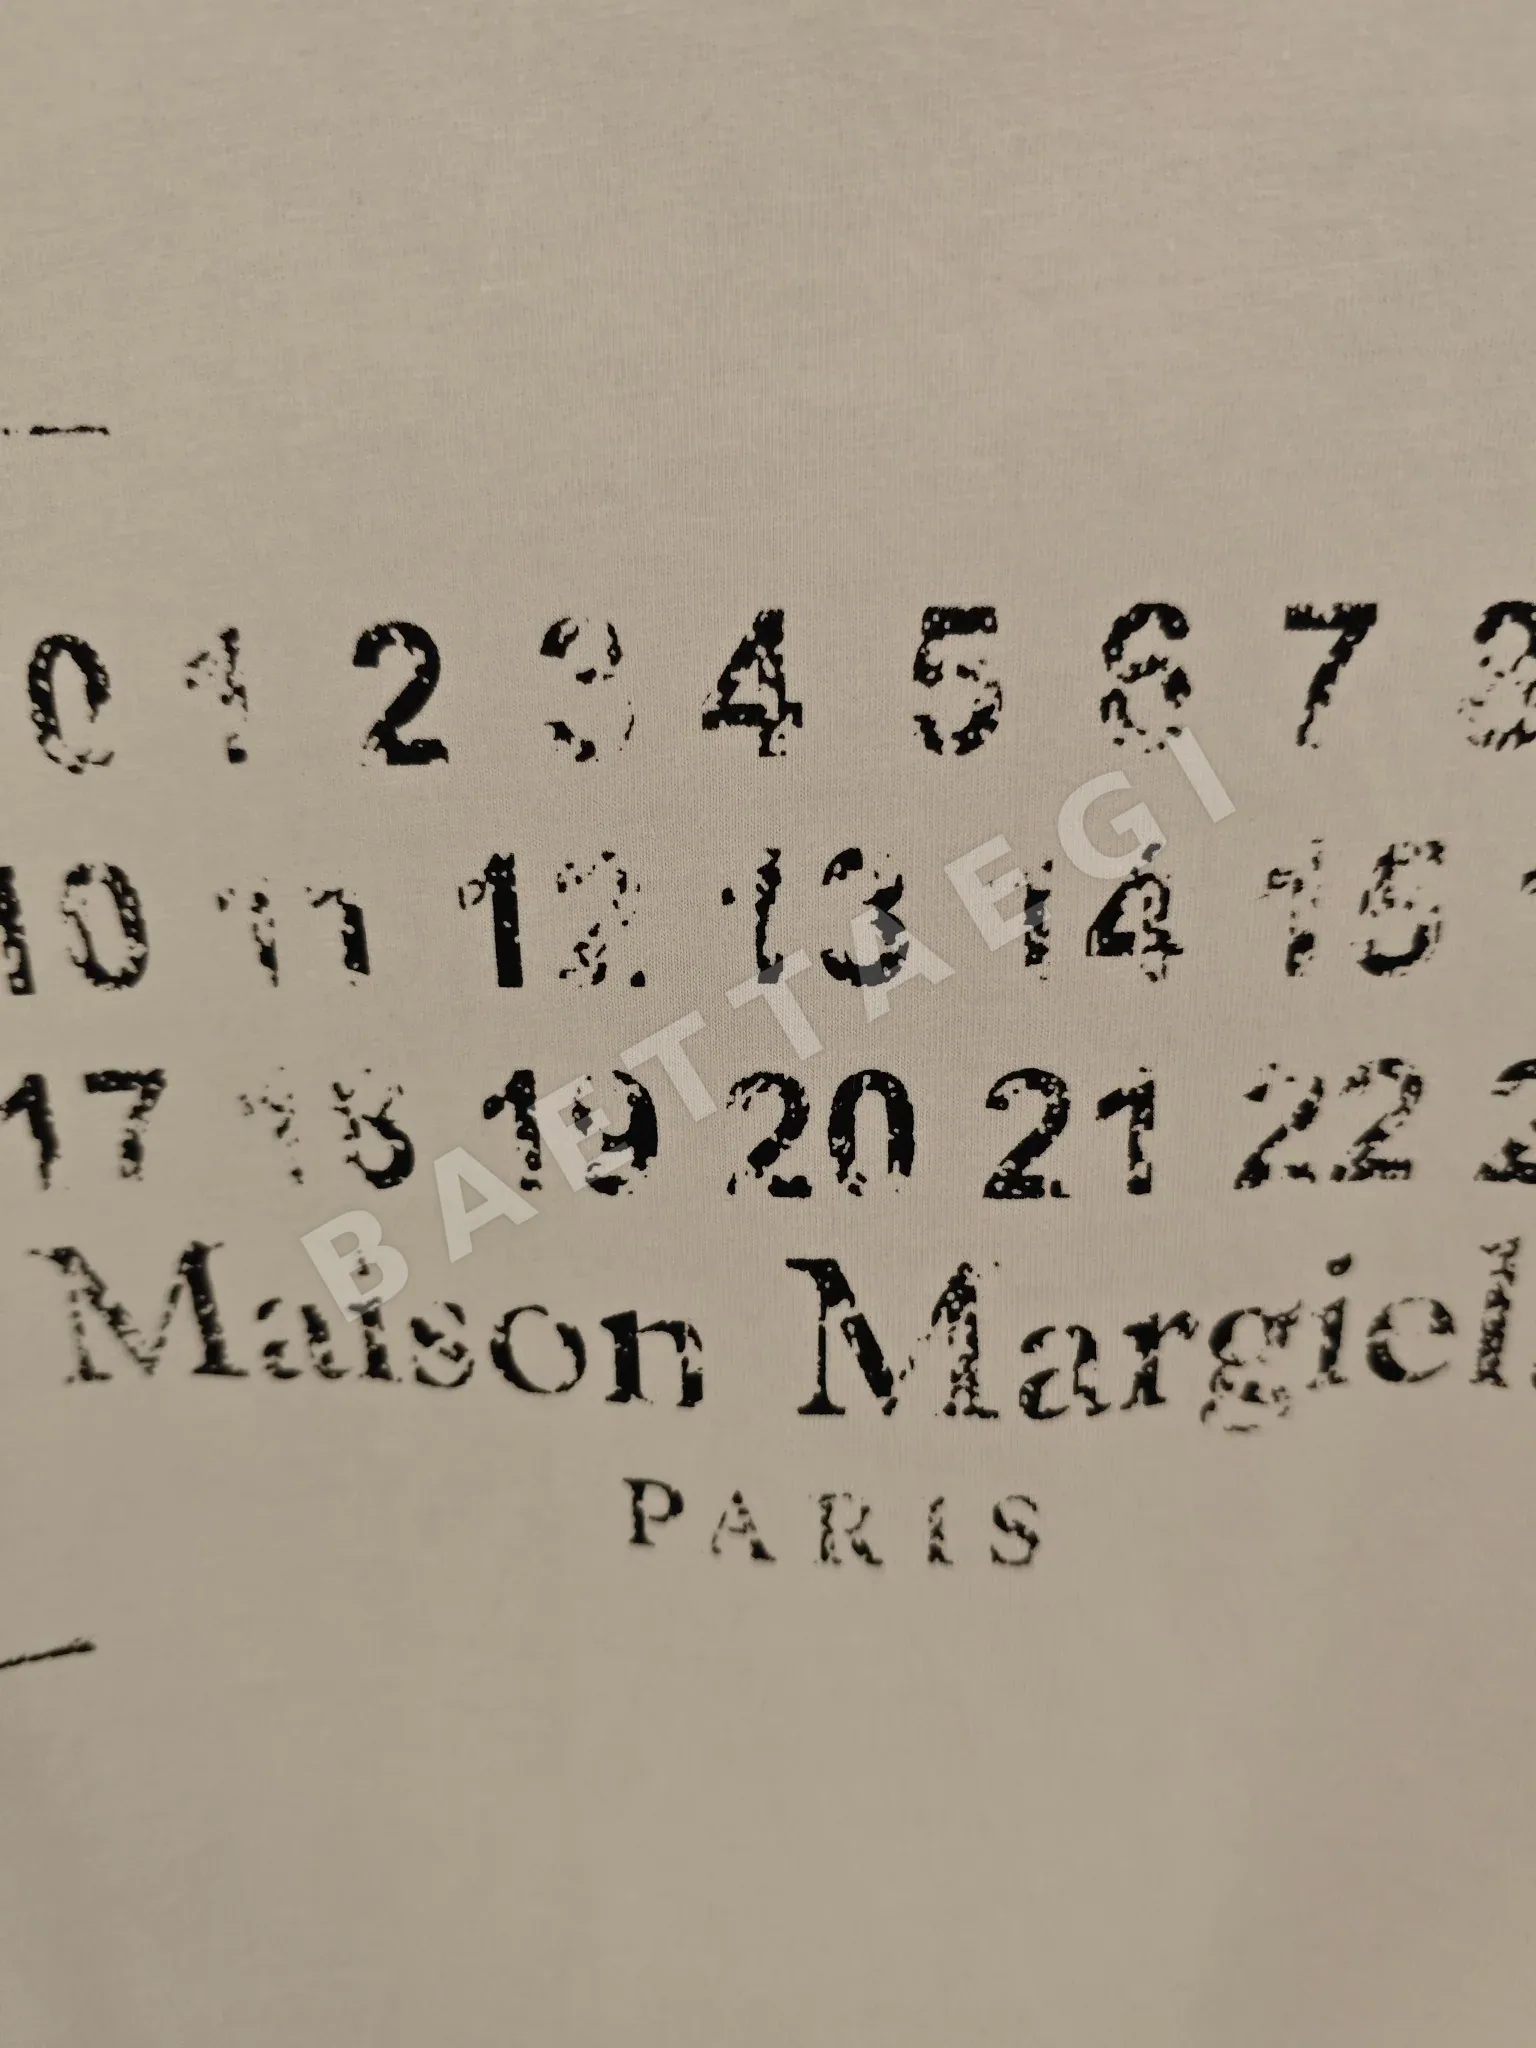 0 1 2 3 4 5 6 7 8
10 11 12 13 14 15
17 18 19 20 21 22 2
Maison Margiel
PARIS
BAETTAEGI